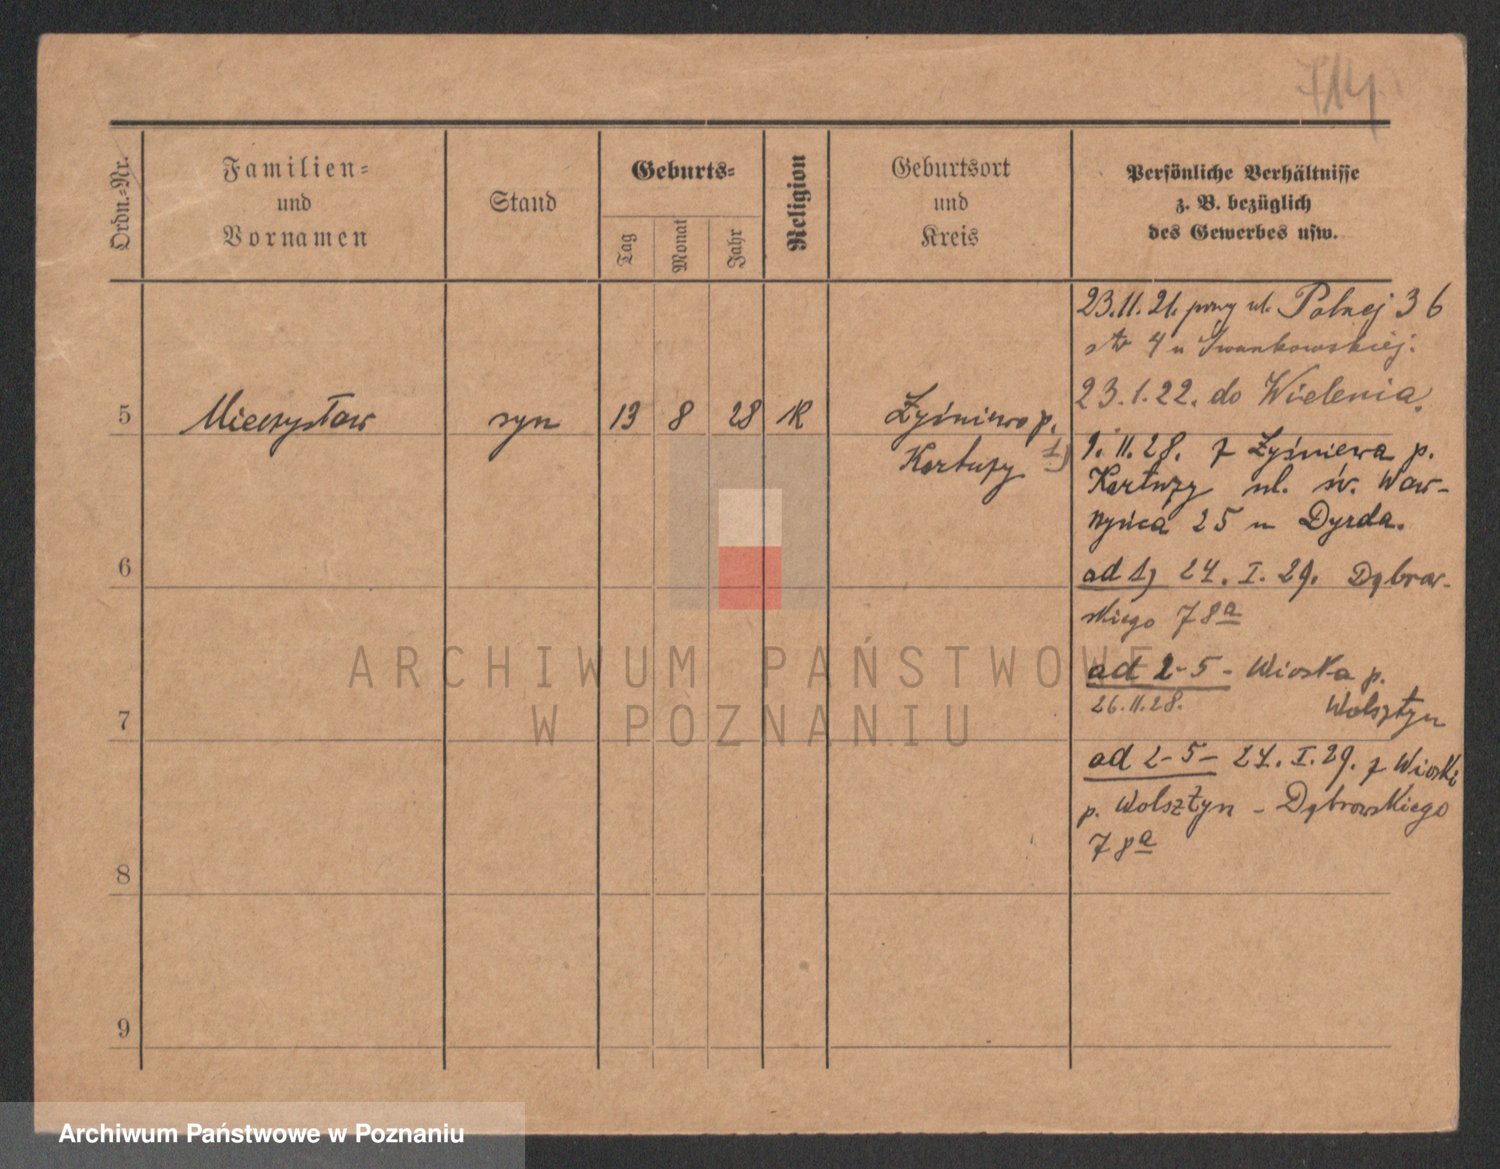 714
Ordn.-Nr.
Familien-
und
Vornamen
Stand
Geburts-
Tag
Monat
Jahr
Religion
Geburtsort
und
Kreis
Persönliche Verhältnisse
z. B. bezüglich
des Gewerbes usw.
23.11.21. przy ul. Polnej 36
str 4 u Iwankowskiej.
23.1.22. do Wielenia.
5 Mieczysław syn 13 8 28 K Zyśniewo p.
Kartuzy 1)
1. 11. 28. z Zyśniewa p.
Kartuzy ul. św. Waw-
rzyńca 25 u Dyrda.
6
ad 1) 24. I. 29. Dąbrow-
skiego 78a
ad 2-5 - Wioska p.
26.11.28. Wolsztyn
7
ad 2-5- 24. I. 29. z Wioski
p. Wolsztyn - Dąbrowskiego
78a
8
9
ARCHIWUM PAŃSTWOWE
W POZNANIU
Archiwum Państwowe w Poznaniu